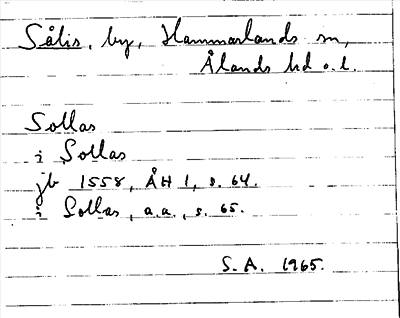 Sålis, by, Hammarlands sn,
Ålands hd o. l.
Sollas
i Sollas
jb 1558, ÅH 1, s. 64.
i Sollas, a.a., s. 65.
S.A. 1965.